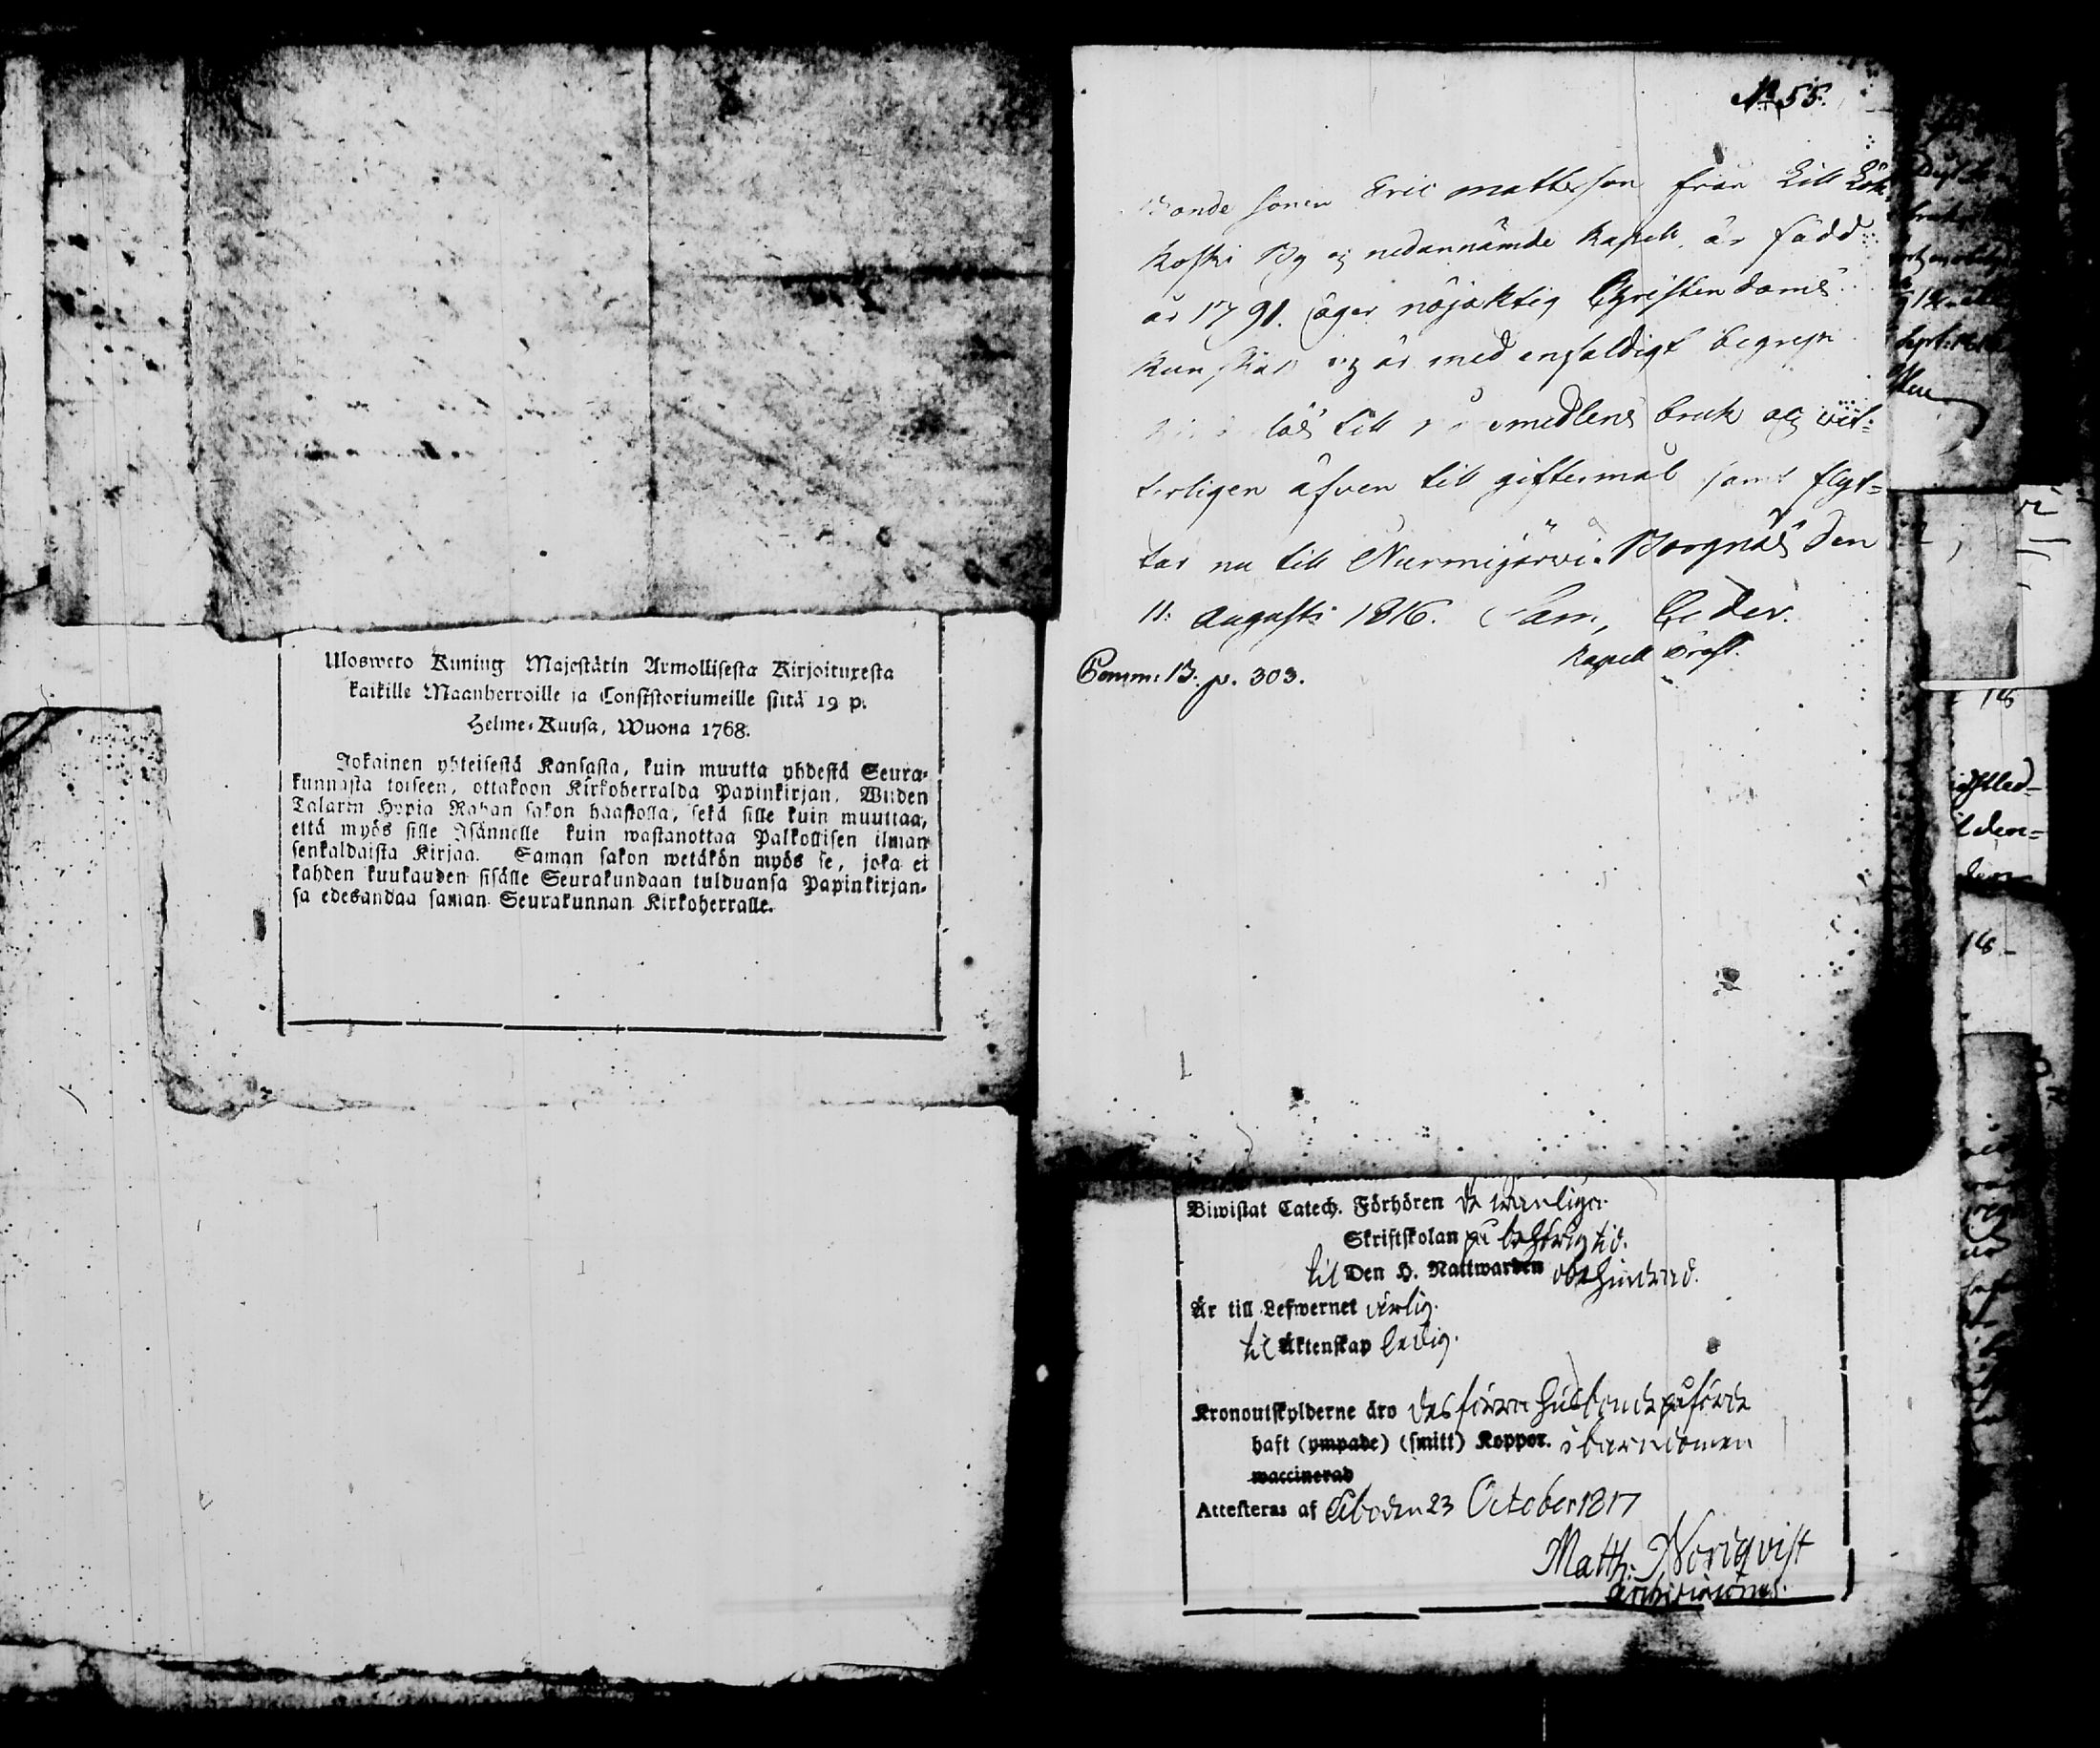 Ulosweto Kuning Majestätin Armollisesta Kirjoituxesta
kaikille Maanherroille ja Consistoriumeille siitä 19 p.
Helme-Kuusa, Wuona 1768.
Jokainen yhteisestä Kansasta, kuin muutta yhdestä Seura-
kunnasta toiseen, ottakoon Kirkoherralda Papinkirjan, Wuden
Talarin Hopia Rahan sakon haastolla, sekä sille kuin muuttaa,
että myös sille Isännelle kuin wastanottaa Palkollisen ilman
senkaldaista Kirjaa. Saman sakon wetäkön myös se, joka ei
kahden kuukauden sisälle Seurakundaan tulduansa Papinkirjan-
sa edesandaa saman Seurakunnan Kirkoherralle.
N 55.
Bonde sonen Eric Mattsson från Lill
koski By og nedannämde Kapell är född
år 1791. äger nöjaktig Christendoms
kunskap og är med enfaldigt begrep
lös till medlens bruk og wit-
terligen äfven till giftermål samt flyt-
tar nu till Nurmijärvi. Borgnäs den
11: Augusti 1816. Sam, Ceder.
Kapell
Comm: B. p. 303.
Biwistat Catech. Förhören de wanliga
Skriftskolan på behörig tid.
til Den H. Nattwarden obehindrad.
Är till Lefwernet ärlig.
til Äktenskap ledig.
Kronoutskylderne äro des förra Husbonde påförde
haft (ympade) (smitt) Koppor. i barndomen
waccinerad
Attesteras af Åbo den 23 October 1817
Matth: Nordqvist